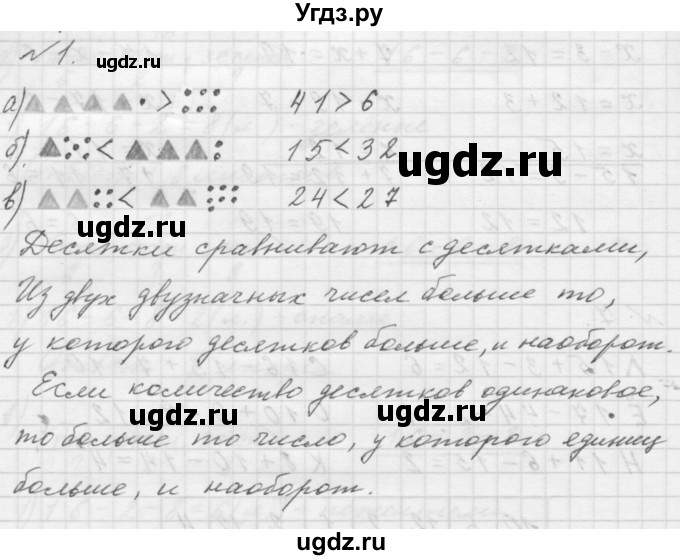 Угдз.ру
№1.
ugdz.ru
а) > 41 > 6
б) < 15 < 32
ugdz.ru
в) < 24 < 27
ugdz.ru
Десятки сравнивают с десятками,
Из двух двузначных чисел больше то,
у которого десятков больше, и наоборот.
ugdz.ru
Если количество десятков одинаковое,
ugdz.ru
ugdz.ru
то больше то число, у которого единиц
больше, и наоборот.
ugdz.ru
ugdz.ru